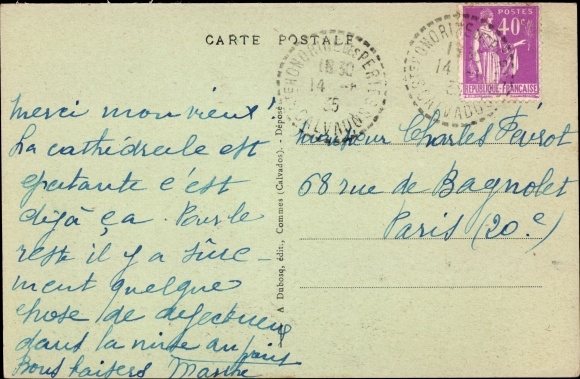 CARTE POSTALE
POSTES
40c
REPUBLIQUE FRANÇAISE
Ste HONORINE-des-PERTES
18 30
14
35
CALVADOS
Merci mon vieux!
La cathédrale est
épatante c'est
déjà ça. Pour le
reste il y a sûre-
ment quelque
chose de défectueux
dans la mise au point
Bons baisers
Monsieur Charles Pévrot
68 rue de Bagnolet
Paris (20e)
A Dubosq, édit., Commes (Calvados). - Déposé